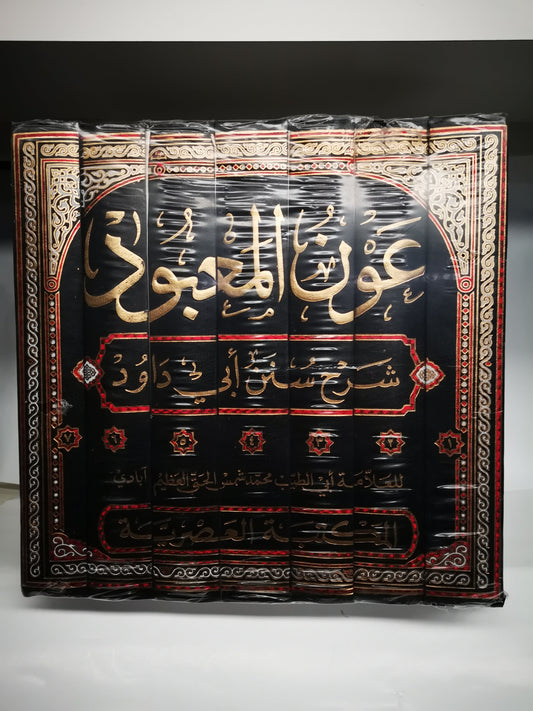 عَوْنُ المَعْبُودِ
شَرْح سُنَن أَبي دَاوُدْ
١ ٢ ٣ ٤ ٥ ٦ ٧
للعلامة أبي الطيب محمد شمس الحق العظيم آبادي
المكتبة العصرية